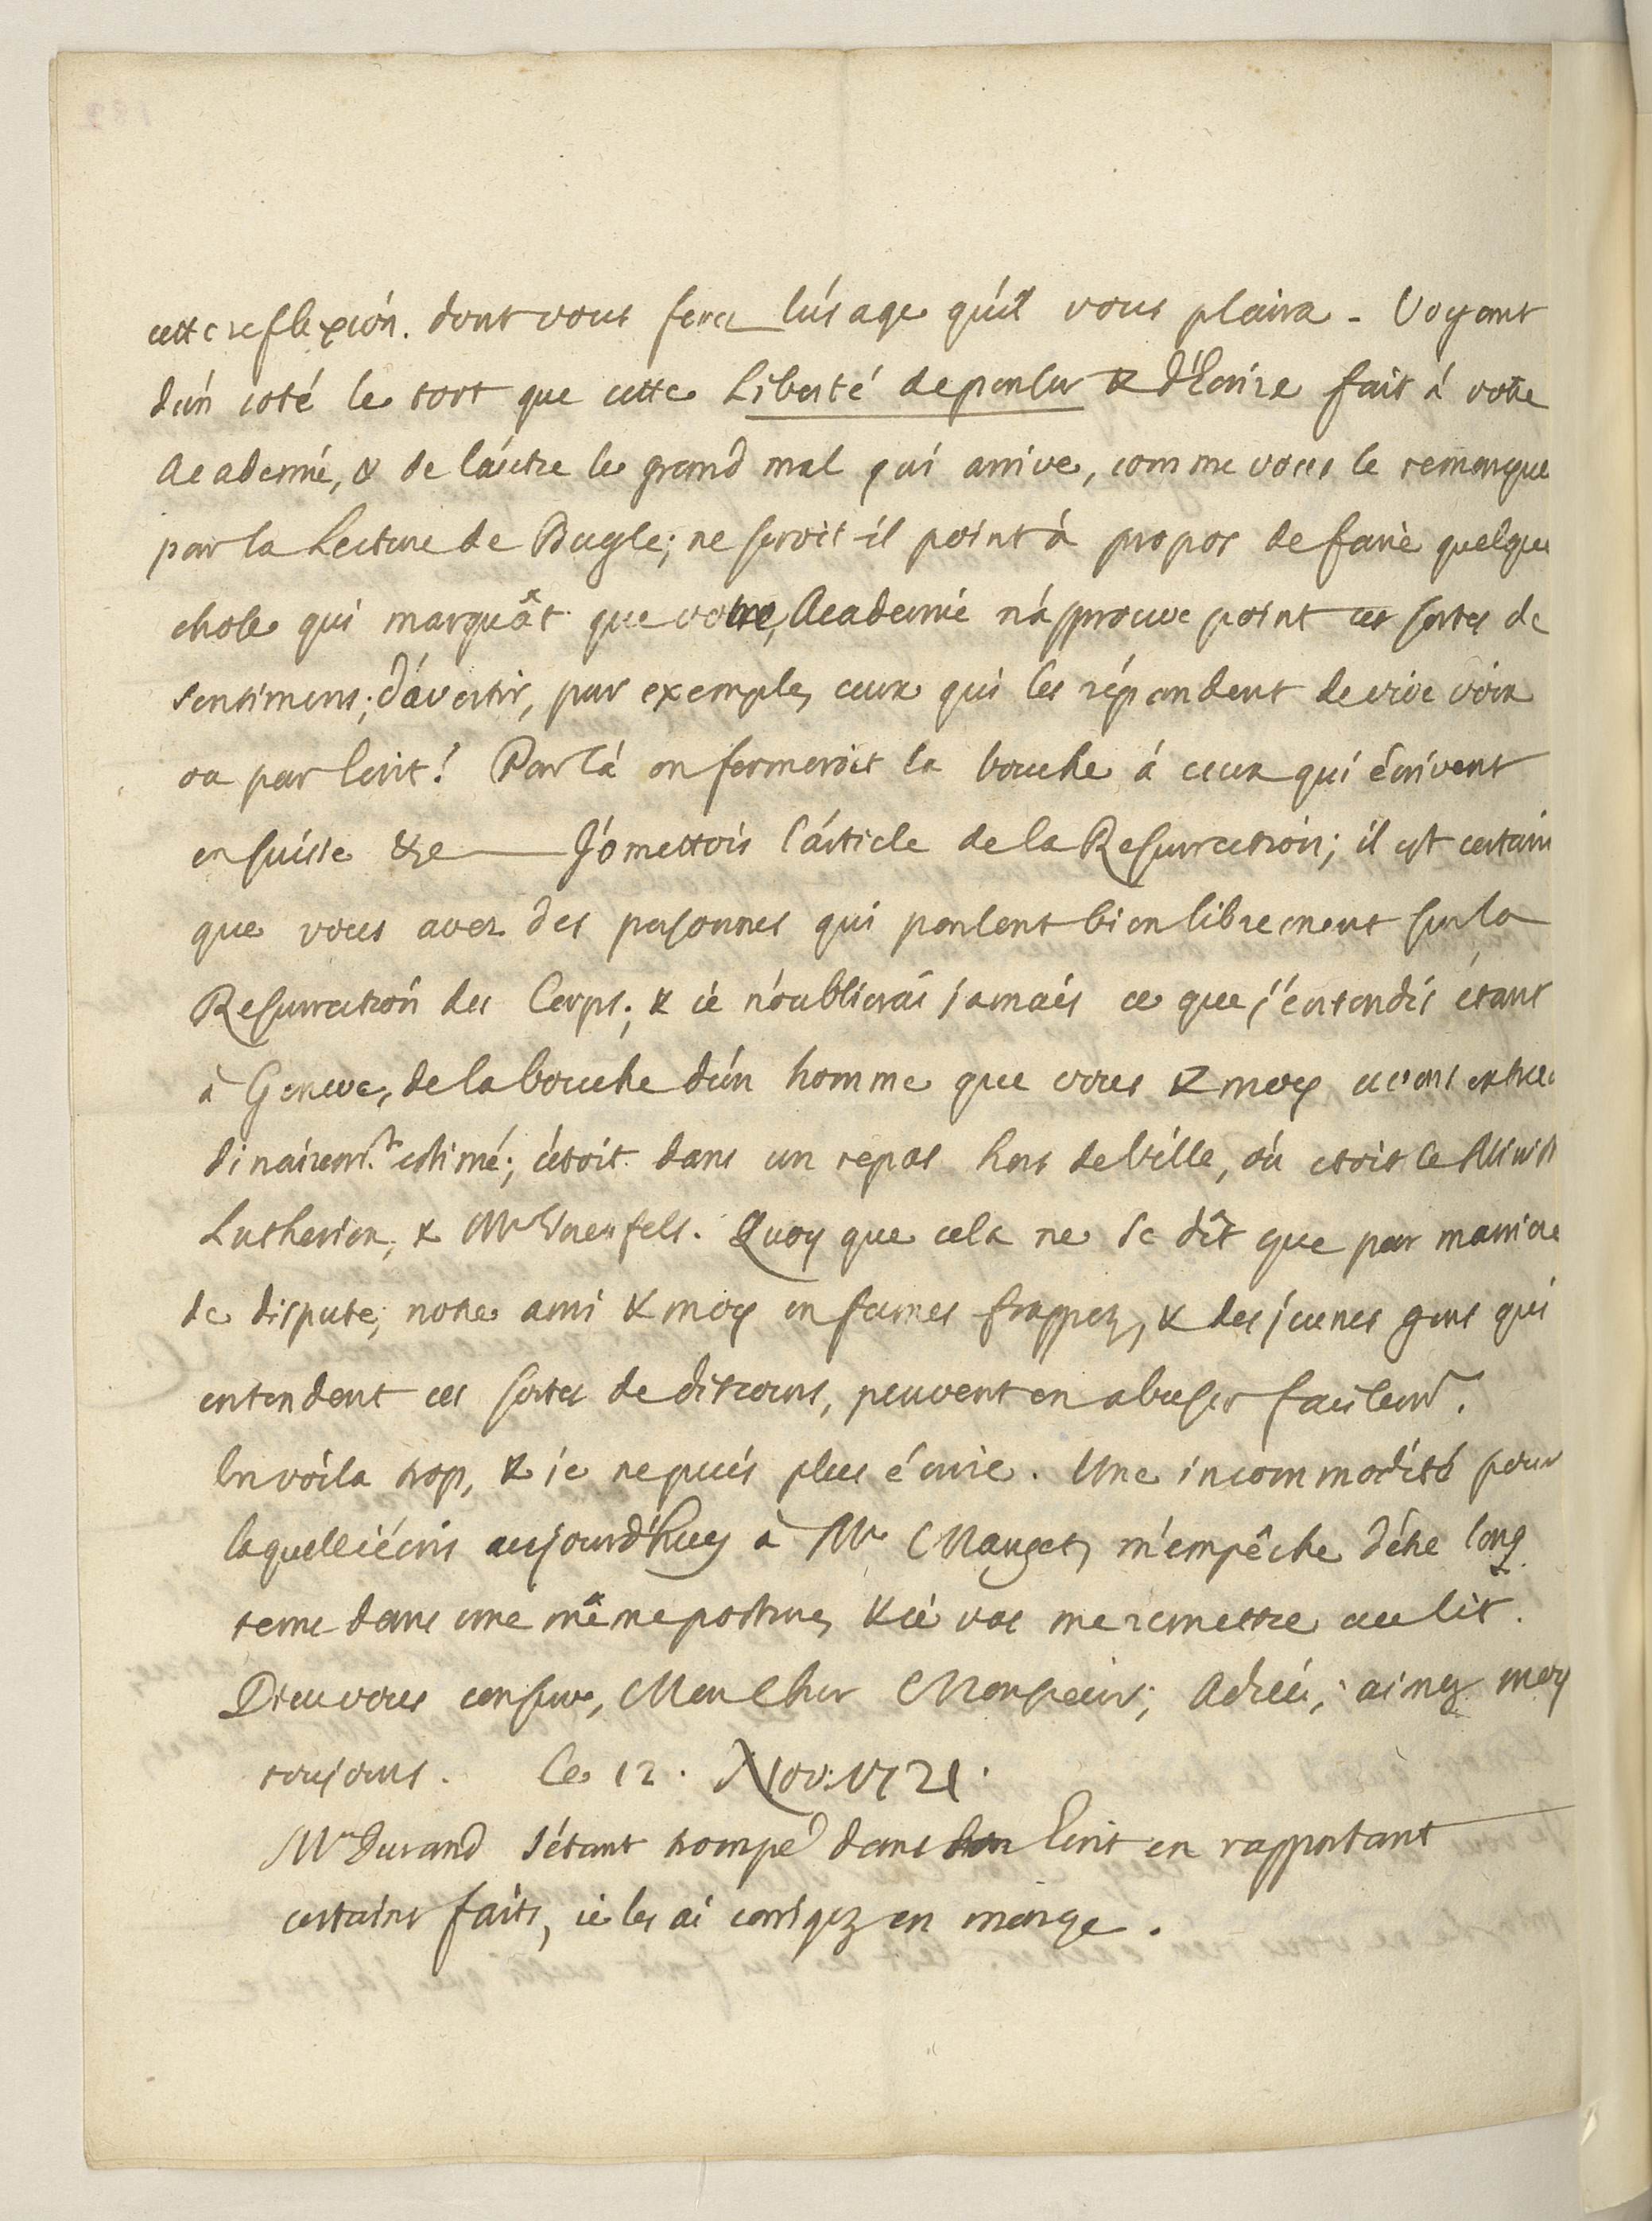 cette reflexion. dont vous ferez l'usage qu'il vous plaira - Voyant
d'un coté le tort que cette Liberté de parler & d'Ecrire fait à votre
Academie, & de l'autre le grand mal qui arrive, comme vous le remarque
par la Lecture de Bayle; ne seroit-il point à propos de faire quelque
chose qui marquât que votre Academie n'approuve point ces sortes de
sentimens; d'avertir, par exemple, ceux qui les répandent de vive voix
ou par Ecrit! Par là on fermeroit la bouche à ceux qui écrivent
en suisse &c — J'omettois l'article de la Resurrection; il est certain
que vous avez des personnes qui parlent bien librement sur la
Resurrection des Corps; & ie n'oublierai jamais ce que j'entendis étant
à Geneve, de la bouche d'un homme que vous & moy avons extraor
dinairemt. estimé; c'étoit dans un repas hors de Ville, où etoit le Minist
Lutherien, & Mr Quoy que cela ne se dît que par maniere
de dispute; notre ami & moy en fumes frappez, & des jeunes gens qui
entendent ces sortes de discours, peuvent en abuser facilemt.
En voila trop, & ie ne puis plus écrire. Une incommodité pour
laquelle i'écris aujourd'huy à Mr Manget, m'empêche d'être long
tems dans une même posture, & ie vas me remettre au lit.
Dieu vous conserve, Mon Cher Monsieur; Adieu; aimez moy
toujours. Ce 12. Nov. 1721.
Mr Durand s'étant trompé dans son Ecrit en rapportant
certains faits, ie les ai corrigez en marge.